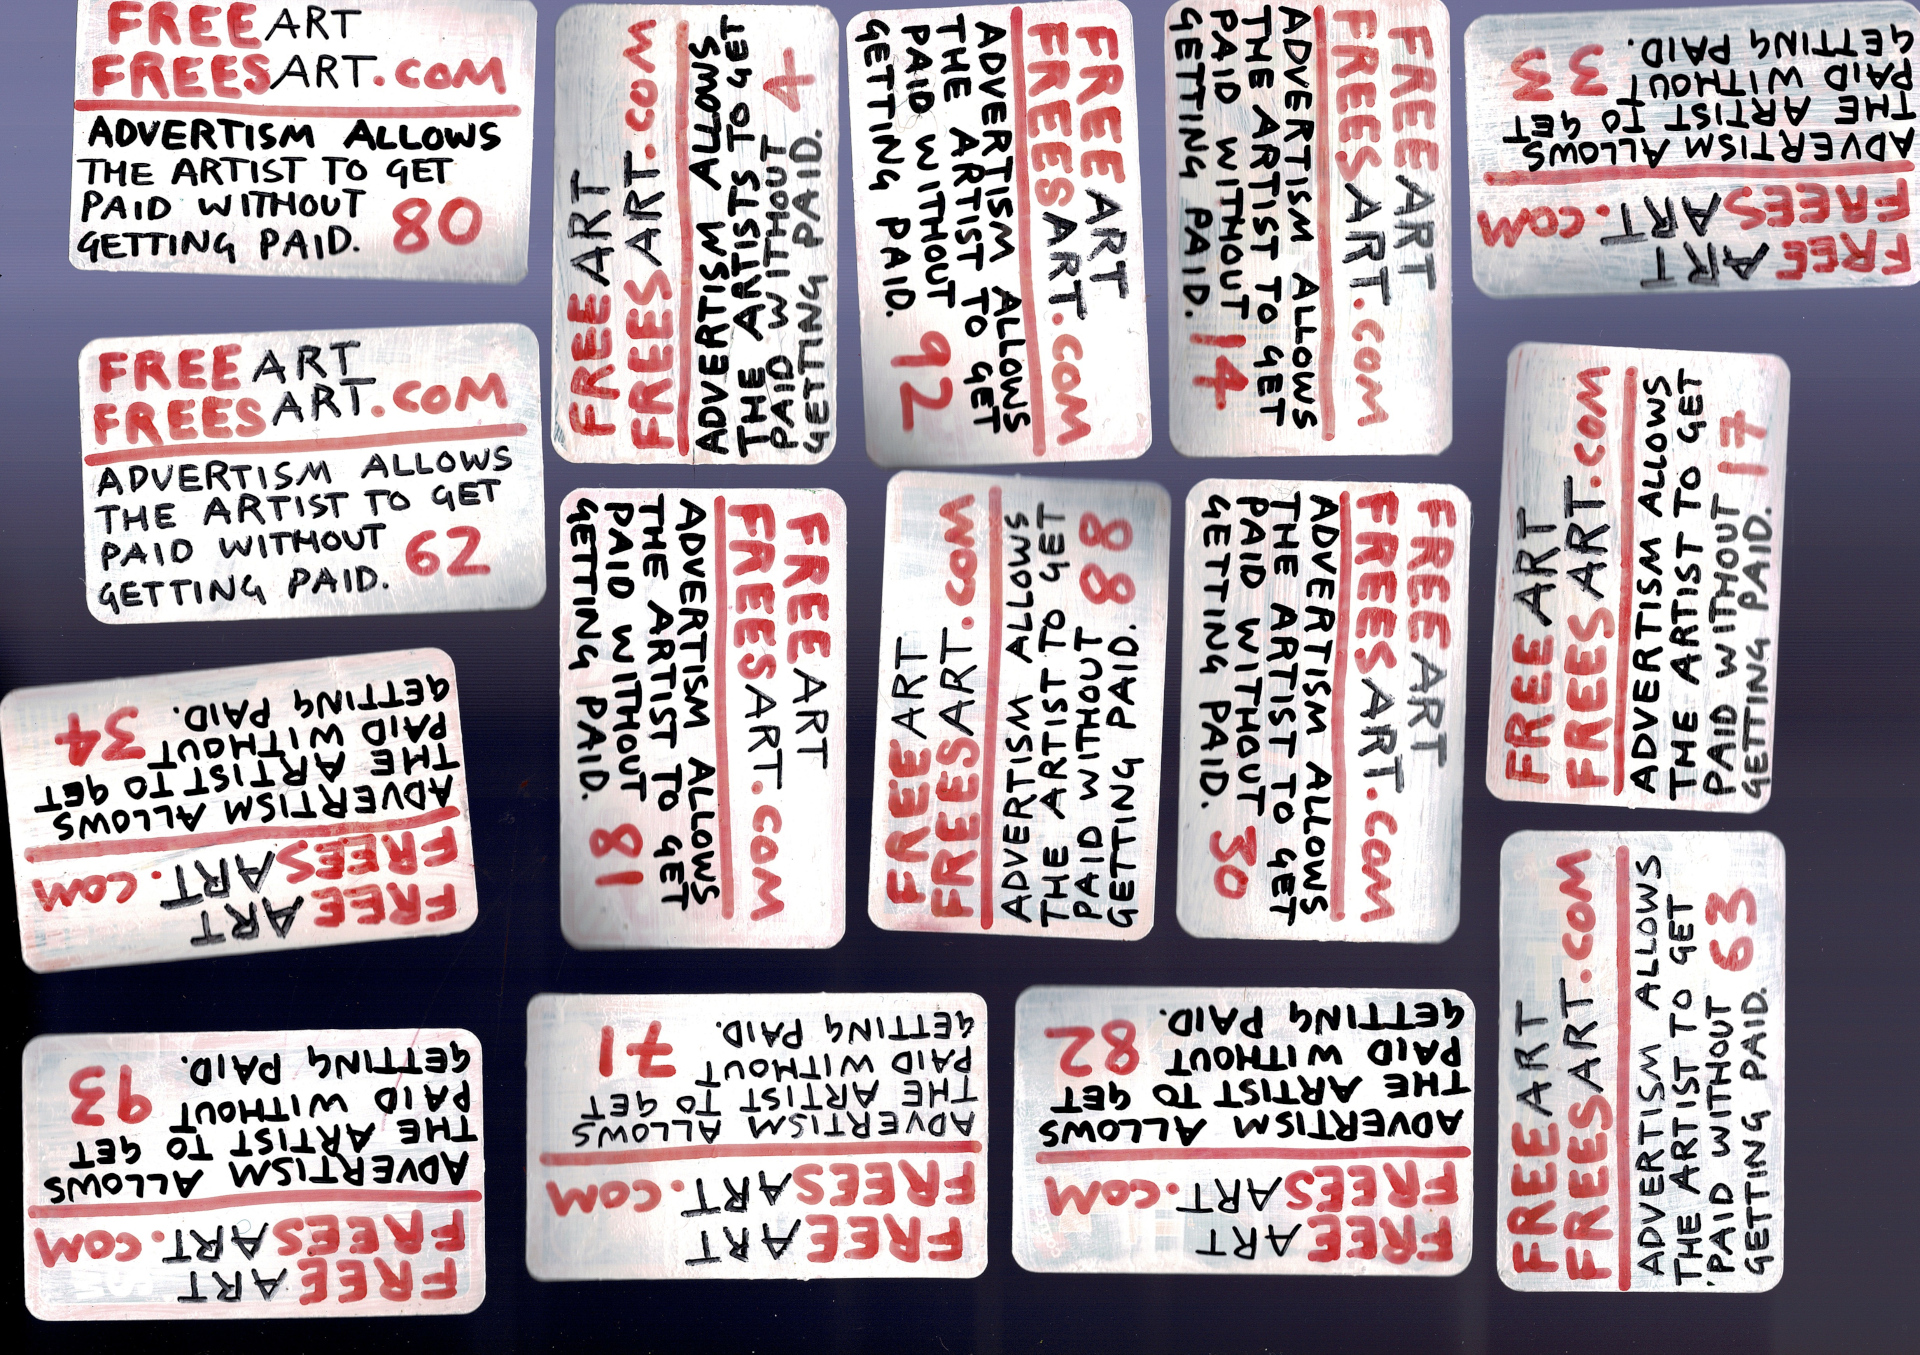 FREE ART
FREES ART.COM
ADVERTISM ALLOWS
THE ARTIST TO GET
PAID WITHOUT
GETTING PAID. 80
FREE ART
FREES ART.COM
ADVERTISM ALLOWS
THE ARTISTS TO GET
PAID WITHOUT 4
GETTING PAID.
FREE ART
FREES ART.COM
ADVERTISM ALLOWS
THE ARTIST TO GET
PAID WITHOUT 92
GETTING PAID.
FREE ART
FREES ART.COM
ADVERTISM ALLOWS
THE ARTIST TO GET
PAID WITHOUT 14
GETTING PAID.
FREE ART
FREES ART.COM
ADVERTISM ALLOWS
THE ARTIST TO GET
PAID WITHOUT
GETTING PAID. 33
FREE ART
FREES ART.COM
ADVERTISM ALLOWS
THE ARTIST TO GET
PAID WITHOUT 62
GETTING PAID.
FREE ART
FREES ART.COM
ADVERTISM ALLOWS
THE ARTIST TO GET
PAID WITHOUT 18
GETTING PAID.
FREE ART
FREES ART.COM
ADVERTISM ALLOWS
THE ARTIST TO GET
PAID WITHOUT
GETTING PAID. 88
FREE ART
FREES ART.COM
ADVERTISM ALLOWS
THE ARTIST TO GET
PAID WITHOUT 30
GETTING PAID.
FREE ART
FREES ART.COM
ADVERTISM ALLOWS
THE ARTIST TO GET
PAID WITHOUT 17
GETTING PAID.
FREE ART
FREES ART.COM
ADVERTISM ALLOWS
THE ARTIST TO GET
PAID WITHOUT 34
GETTING PAID.
FREE ART
FREES ART.COM
ADVERTISM ALLOWS
THE ARTIST TO GET
PAID WITHOUT 93
GETTING PAID.
FREE ART
FREES ART.COM
ADVERTISM ALLOWS
THE ARTIST TO GET
PAID WITHOUT 71
GETTING PAID.
FREE ART
FREES ART.COM
ADVERTISM ALLOWS
THE ARTIST TO GET
PAID WITHOUT 82
GETTING PAID.
FREE ART
FREES ART.COM
ADVERTISM ALLOWS
THE ARTIST TO GET
PAID WITHOUT 63
GETTING PAID.